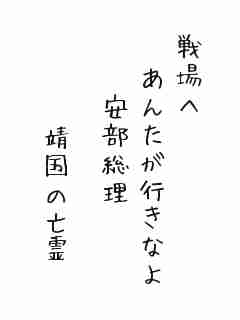 戦場へ
あんたが行きなよ
安部総理
靖国の亡霊